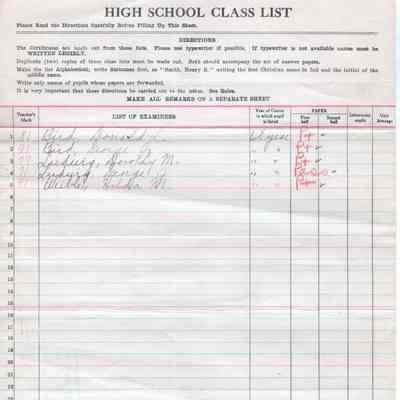 HIGH SCHOOL CLASS LIST
Please Read the Directions Carefully Before Filling Up This Sheet.
DIRECTIONS
The Certificates are made out from these lists. Please use typewriter if possible. If typewriter is not available names must be
WRITTEN LEGIBLY.
Duplicate (two) copies of these class lists must be made out. Both should accompany the set of answer papers.
Make the list Alphabetical; write Surnames first, as "Smith, Henry S." writing the first Christian name in full and the initial of the
middle name.
Write only names of pupils whose papers are forwarded.
It is very important that these directions be carried out to the letter. See Rules.
MAKE ALL REMARKS ON A SEPARATE SHEET
Teacher's Mark LIST OF EXAMINEES Year of Course in which pupil is listed PAPER First half Second half Laboratory
1 Bird, Donald L.
2 Bird, George
3 Dorothy M. " "
4 George " "
5 Hilda M. " "
6
7
8
9
10
11
12
13
14
15
16
17
18
19
20
21
22